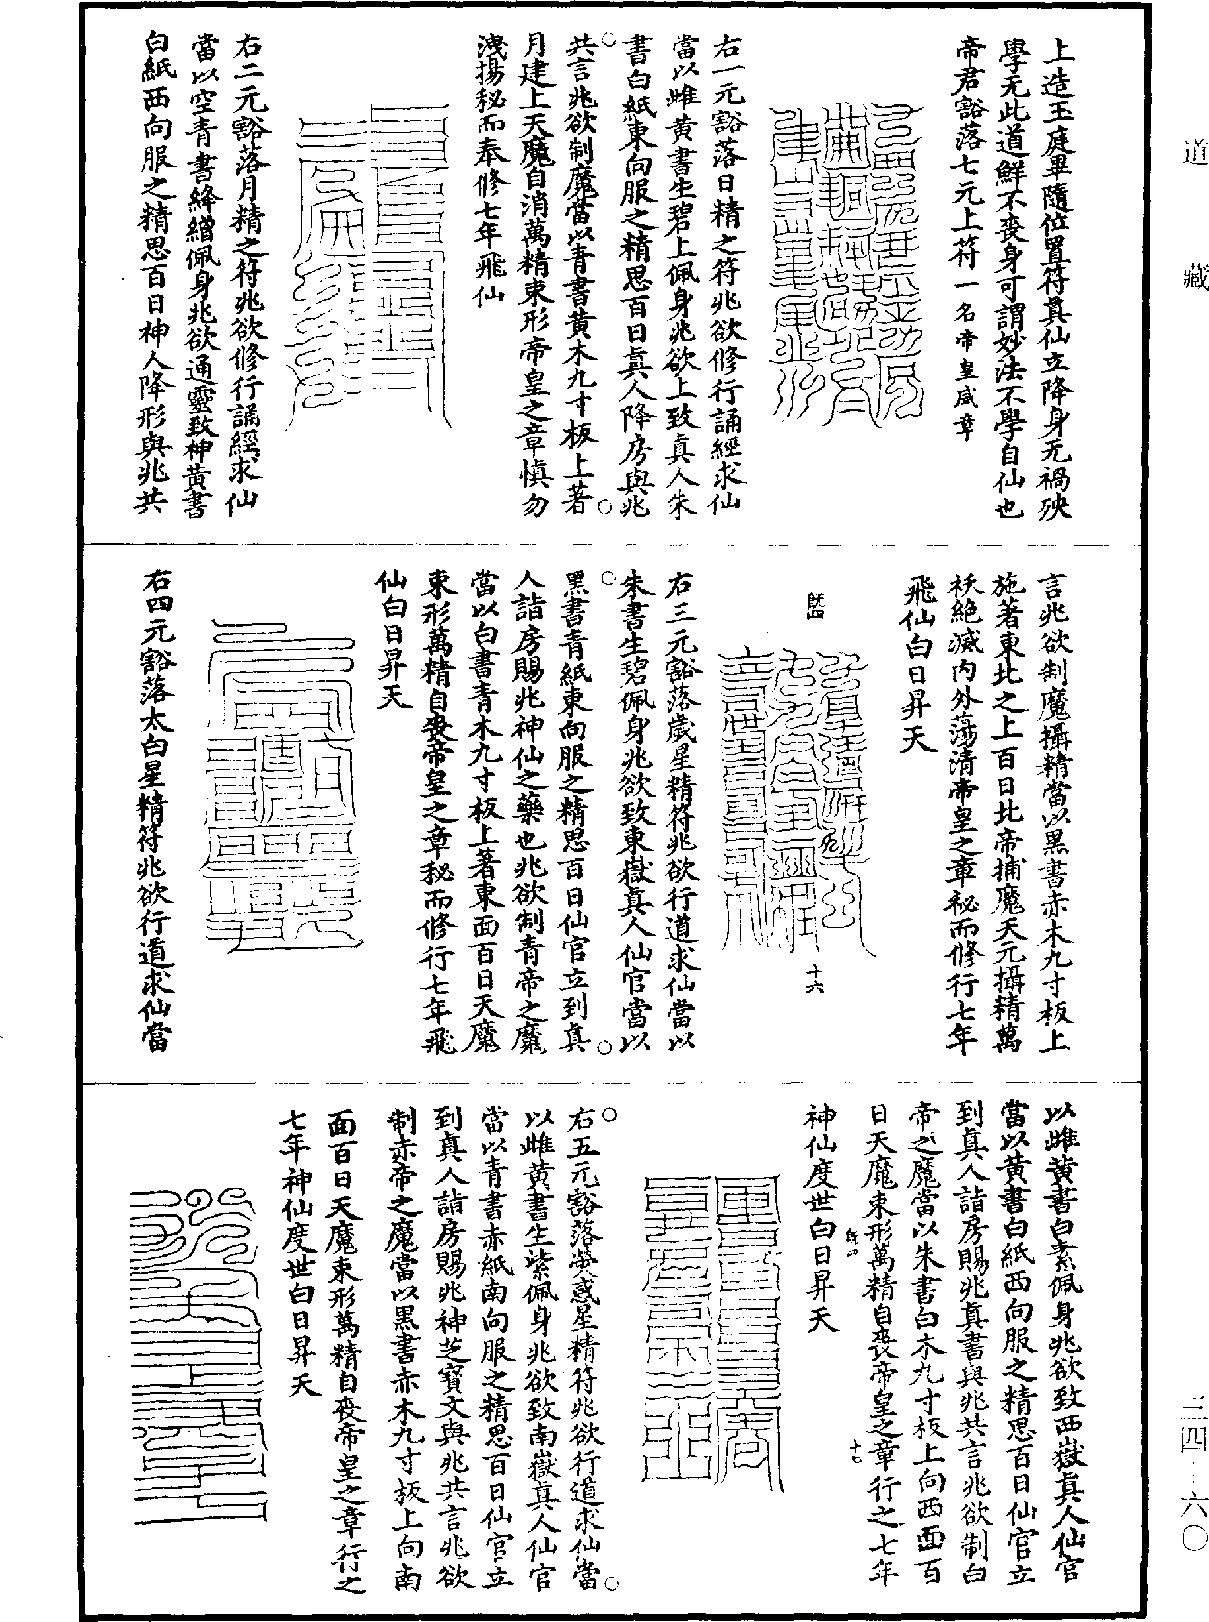 道藏
上造玉庭畢隨位置符真仙立降身无禍殃
學无此道鮮不喪身可謂妙法不學自仙也
帝君豁落七元上符一名帝皇威章
右一元豁落日精之符兆欲修行誦經求仙
當以雌黄書生碧上佩身兆欲上致真人朱
書白紙東向服之精思百日真人降房與兆
共言兆欲制魔當以青書黄木九寸板上著
月建上天魔自消萬精束形帝皇之章慎勿
洩揚秘而奉修七年飛仙
右二元豁落月精之符兆欲修行誦經求仙
當以空青書絳繒佩身兆欲通靈致神黄書
白紙西向服之精思百日神人降形與兆共
言兆欲制魔攝精當以黑書赤木九寸板上
施著東北之上百日北帝捕魔天元攝精萬
袄絶滅内外蕩清帝皇之章秘而修行七年
飛仙白日昇天
既四
十六
右三元豁落歲星精符兆欲行道求仙當以
朱書生碧佩身兆欲致東嶽真人仙官當以
黑書青紙東向服之精思百日仙官立到真
人詣房賜兆神仙之藥也兆欲制青帝之魔
當以白書青木九寸板上著東面百日天魔
束形萬精自喪帝皇之章秘而修行七年飛
仙白日昇天
右四元豁落太白星精符兆欲行道求仙當
以雌黄書白素佩身兆欲致西嶽真人仙官
當以黄書白紙西向服之精思百日仙官立
到真人詣房賜兆真書與兆共言兆欲制白
帝之魔當以朱書白木九寸板上向西面百
日天魔束形萬精自喪帝皇之章行之七年
既四
十七
神仙度世白日昇天
右五元豁落熒惑星精符兆欲行道求仙當
以雌黄書生紫佩身兆欲致南嶽真人仙官
當以青書赤紙南向服之精思百日仙官立
到真人詣房賜兆神芝寶文與兆共言兆欲
制赤帝之魔當以黑書赤木九寸板上向南
面百日天魔束形萬精自喪帝皇之章行之
七年神仙度世白日昇天
三四—六〇